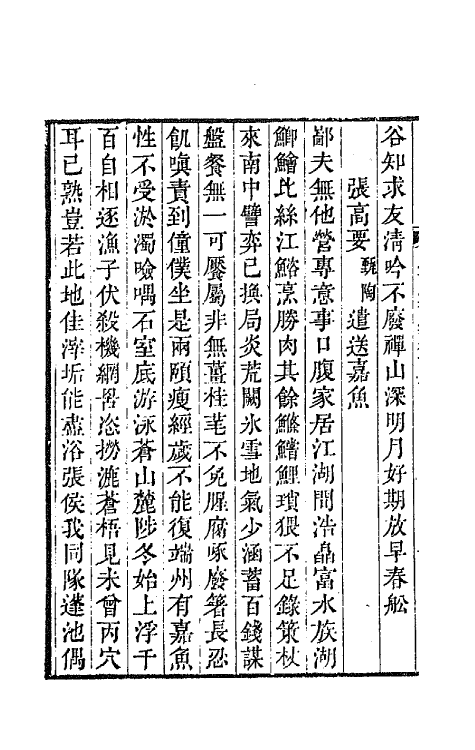 谷知求友淸吟不廢禪山深明月好期放早春船
張高要甄陶遣送嘉魚
鄙夫無他營專意事口腹家居江湖間浩皛富水族湖
鯽鱠比絲江鰌烹勝肉其餘鰷鱨鯉瑣猥不足錄策杖
來南中譬弈已換局炎荒闕氷雪地氣少涵蓄百錢謀
盤餐無一可饜屬非無薑桂芼不免腥腐啄廢箸長忍
飢嗔責到僮僕坐是兩頤瘦經歲不能復端州有嘉魚
性不受淤濁噞喁石室底游泳蒼山麓陟冬始上浮千
百自相逐漁子伏殺機網罟恣撈漉蒼梧見未曾丙穴
耳已熟豈若此地佳滓垢能盡浴張侯我同隊蓬池偶